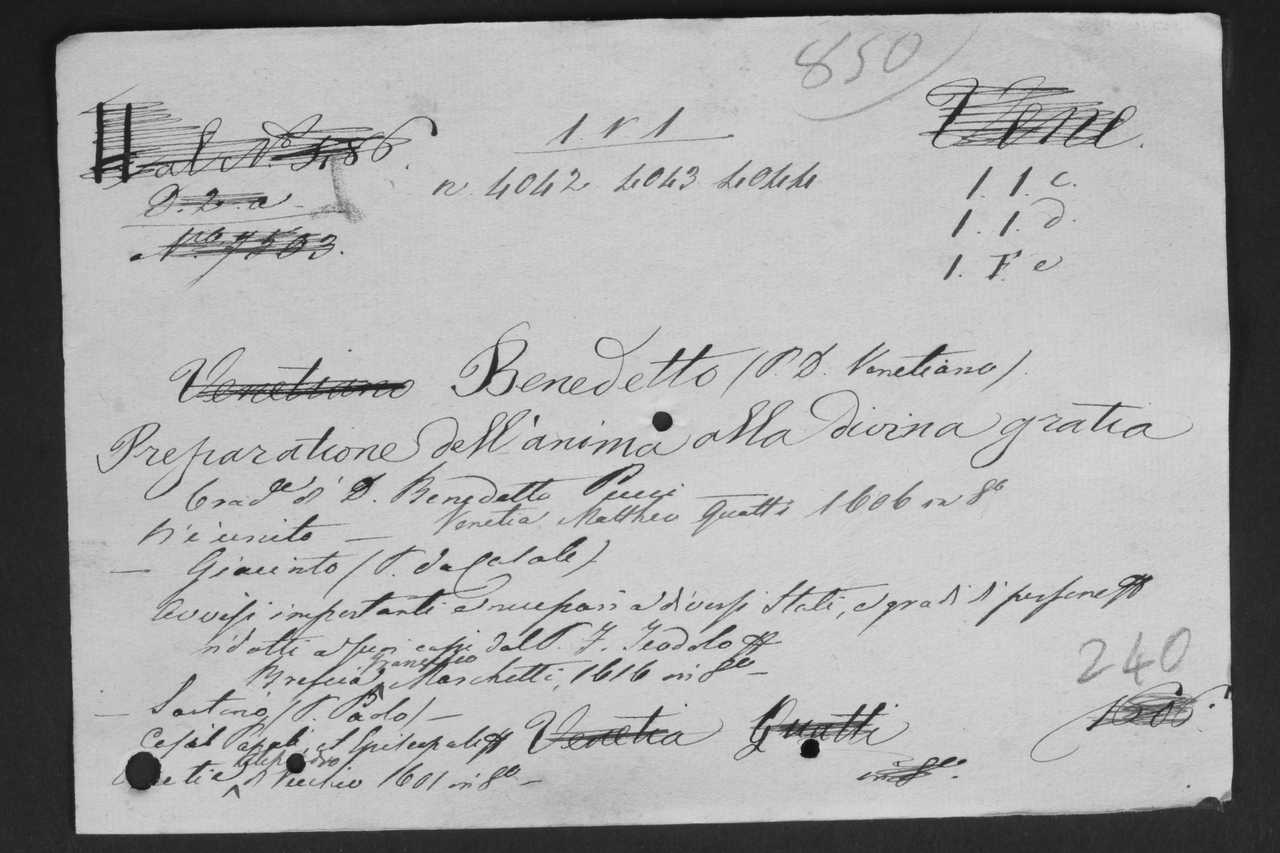 850
Hal N.o 5,86.
D. 2. a
N.ro 7503.
1. r 1
n. 4042 4043 4044
Vene.
1. 1. c.
1. 1. d.
1. F. e
Venetiano Benedetto (P. D. Venetiano).
Preparatione dell'anima alla divina gratia
D. Benedetto Pucci
N'è unito — Venetia Mattheo Quatti 1606 in 8o
— Giacinto (P. da Casale)
Avvisi importanti e necessari a' diversi stati, e gradi di persone
ridotti a suoi capi dal P. F. Teodolo
Brescia Francesco Marchetti, 1616 in 8vo —
— Sartino (P. Paolo) —
Casi Papali, et Episcopali Venetia Quatti 1606.
Vecchio 1601 in 8vo — in 8vo.
240